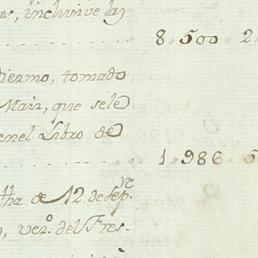 inclusive las
8„500„2
tomado
Mair, que se le
en el Libro de
1„986„5
fha de 12. de Sepᵗᵉ.
, verº. del Fres-